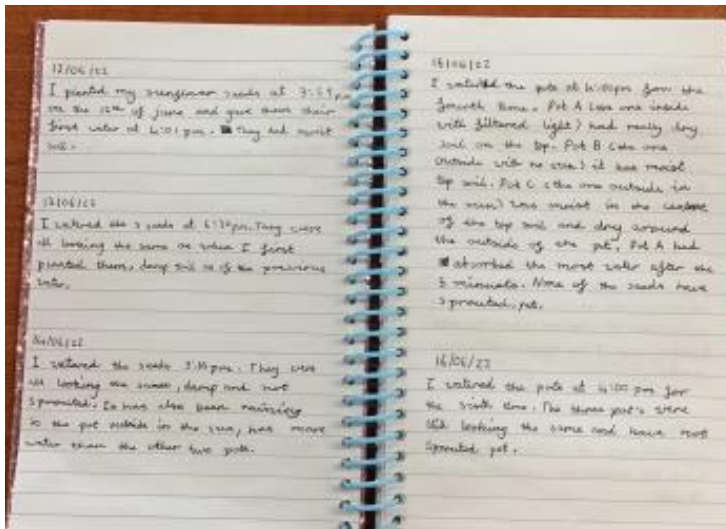 12/06/22
I planted my sunflower seeds at 3:59pm
on the 12th of june and gave them their
first water at 4:01 pm. They had moist
soil.
13/06/22
I watered the seeds at 6:30pm. They were
all looking the same as when I first
planted them, damp soil as if the previous
water.
14/06/22
I watered the seeds pm. They were
all looking the same, damp and not
sprouted. It has also been raining
so the pot outside in the sun, has more
water than the other two pots.
15/06/22
I watered the pots at 4:00pm for the
fourth time. Pot A (the one inside
with filtered light) had really dry
soil on the top. Pot B (the one
outside with no sun) it has moist
top soil. Pot C (the one outside in
the sun) was moist in the
of the top soil and dry around
the outside of the pot. Pot A had
absorbed the most water after the
5 minutes. None of the seeds have
sprouted yet.
16/06/22
I watered the pots at 4:00 pm for
the sixth time. The three pot's were
still looking the same and have not
sprouted yet.